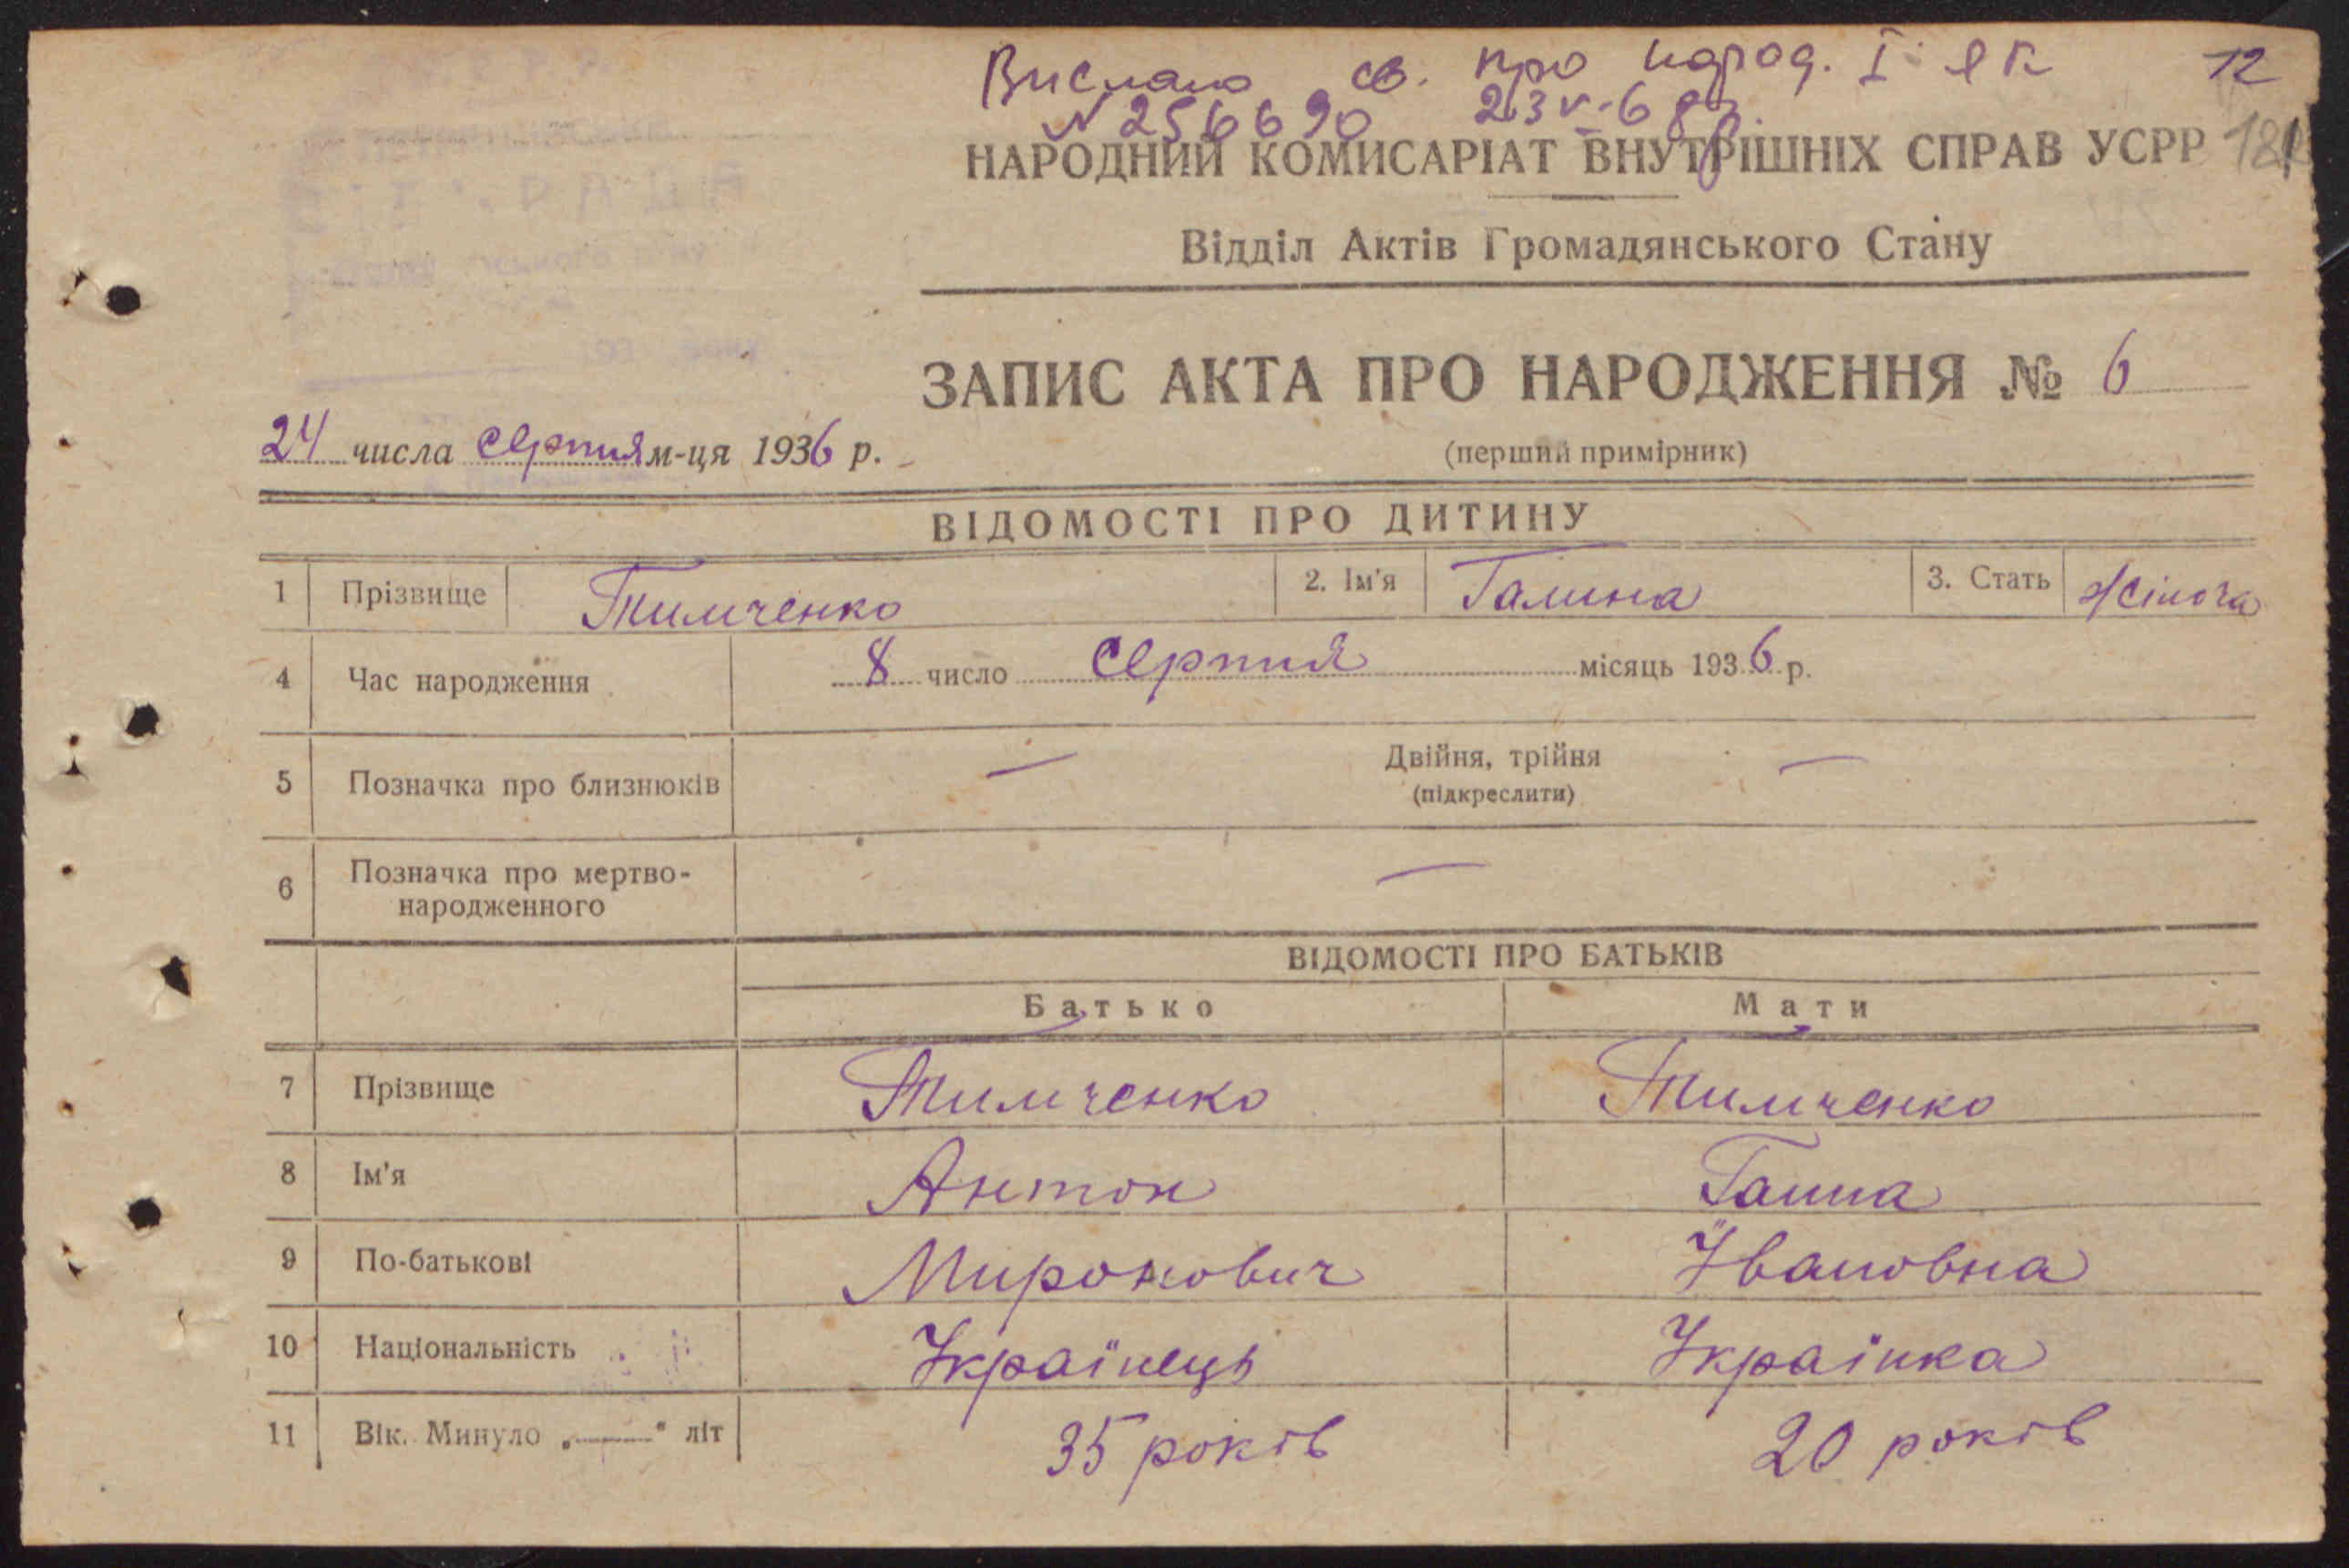 Вислано св. про народ. I ЯК 12
N 256690 23 V-68р.
НАРОДНИЙ КОМИСАРІАТ ВНУТРІШНІХ СПРАВ УСРР
Відділ Актів Громадянського Стану
ЗАПИС АКТА ПРО НАРОДЖЕННЯ № 6
24 числа серпня м-ця 1936 р.
(перший примірник)
ВІДОМОСТІ ПРО ДИТИНУ
1 Прізвище Тимченко 2. Ім'я Галина 3. Стать Жіноча
4 Час народження 8 число Серпня місяць 1936 р.
5 Позначка про близнюків — Двійня, трійня —
(підкреслити)
6 Позначка про мертво-
народженного —
ВІДОМОСТІ ПРО БАТЬКІВ
Батько Мати
7 Прізвище Тимченко Тимченко
8 Ім'я Антон Ганна
9 По-батькові Миронович Івановна
10 Національність Українець Українка
11 Вік. Минуло „——" літ 35 років 20 років